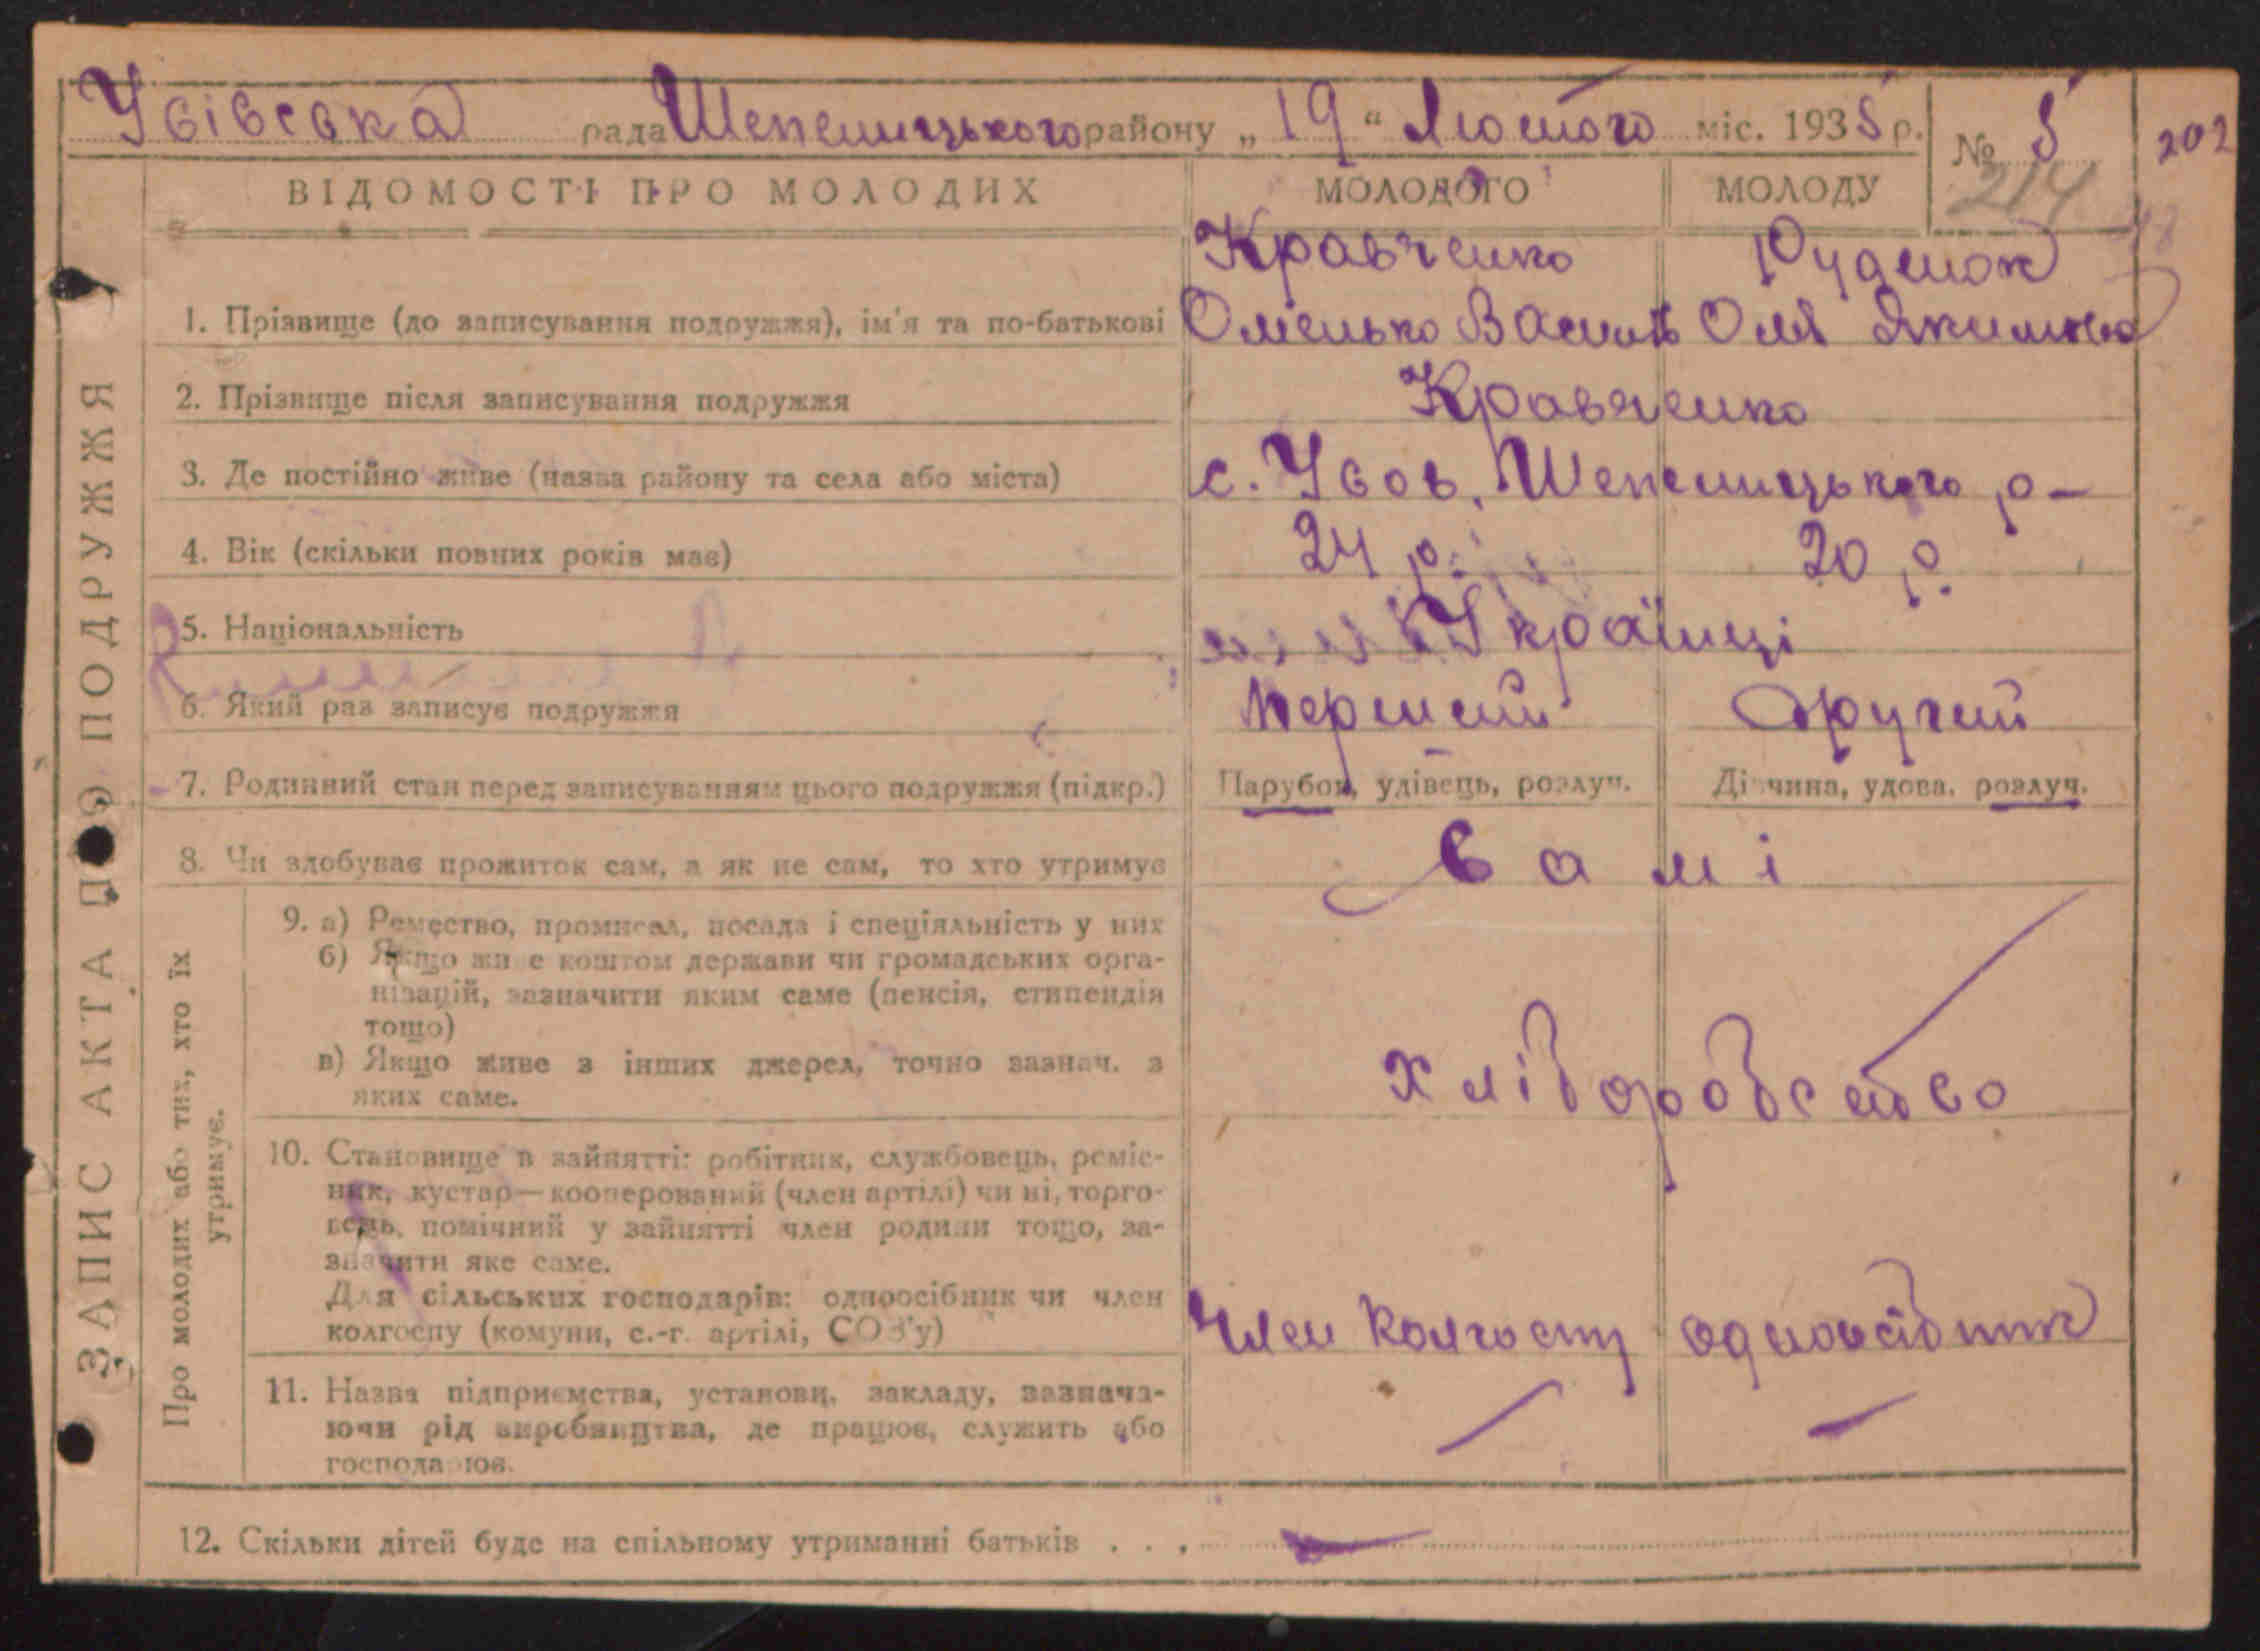 Усівська рада Шепелицького району „ 19 “ Лютого міс. 1935 р.
№ 5
202
214
ВІДОМОСТІ ПРО МОЛОДИХ МОЛОДОГО МОЛОДУ
Кравченко Руденок
1. Прізвище (до записування подружжя), ім'я та по-батькові Омелько Васильв Оля Якимівна
2. Прізвище після записування подружжя Кравченко
3. Де постійно живе (назва району та села або міста) с. Усов, Шепелицького р–
4. Вік (скільки повних років має) 24 р. 20 р.
5. Національність Українці
6. Який раз записує подружжя перший другий
7. Родинний стан перед записуванням цього подружжя (підкр.) Парубок, удівець, розлуч. Дівчина, удова, розлуч.
8. Чи здобуває прожиток сам, а як не сам, то хто утримує самі
9. а) Ремество, промисел, посада і спеціяльність у них
б) Якщо живе коштом держави чи громадських орга-
нізацій, зазначити яким саме (пенсія, стипендія
тощо)
в) Якщо живе з інших джерел, точно зазнач. з
яких саме.
хліборобство
10. Становище в зайнятті: робітник, службовець, реміс-
ник, кустар—кооперований (член артілі) чи ні, торго-
вець, помічний у зайнятті член родини тощо, за-
значити яке саме.
Для сільських господарів: одноосібник чи член
колгоспу (комуни, с.-г. артілі, СОЗ'у)
Член колгоспу одноосібник
11. Назва підприємства, установи, закладу, зазнача-
ючи рід виробництва, де працює, служить або
господарює.
12. Скільки дітей буде на спільному утриманні батьків . . .
ЗАПИС АКТА ПРО ПОДРУЖЖЯ
Про молодих або тих, хто їх
утримує.